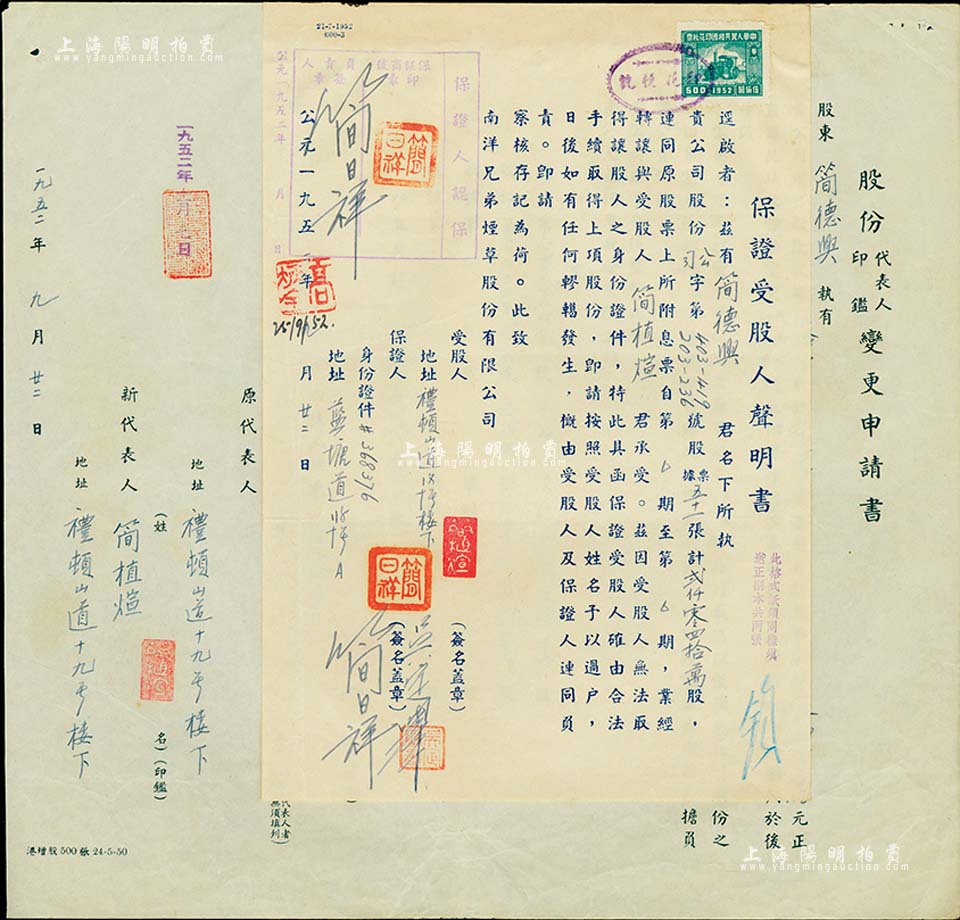 上海陽明拍賣
www.yangmingauction.com
股份代表人印鑑變更申請書
股東 簡德興 執有
元正
於後
份之
擔負
原代表人
地址 禮頓山道十九號樓下
新代表人 簡植煊
(姓名)(印鑑)
地址 禮頓山道十九號樓下
代表人者
無須填列
一九五二年 月 日
一九五二年九月廿二日
港增股500張 24-5-50
21-7-1952
600-3
中華人民共和國印花稅票
500 1952 伍佰圓
保證受股人聲明書
此格式長期同樣填
逕啟者：茲有 簡德興 君名下所執
貴公司股份 公司 字第 403-419 203-236 號股票據 五十一 張計 貳仟零四拾萬 股，
連同原股票上所附息票自第 6 期至第 6 期，業經
轉讓與受股人 簡植煊 君承受。茲因受股人無法取
得讓股人之身份證件，特此具函保證受股人確由合法
手續取得上項股份，即請按照受股人姓名予以過户，
日後如有任何轇轕發生，概由受股人及保證人連同負
責。即請
察核存記為荷。此致
南洋兄弟煙草股份有限公司
受股人 (簽名蓋章)
地址 禮頓山道19號樓下
保證人 簡日祥 (簽名蓋章)
身份證件 #368376
地址 藍塘道 A
公元一九五二年 月廿二日
保證人認保
簡日祥
簡日祥
簡日祥
公元一九五二年 月 日
25/9/52.
上海陽明拍賣
www.yangmingauction.com
上海陽明拍賣
www.yangmingauction.com